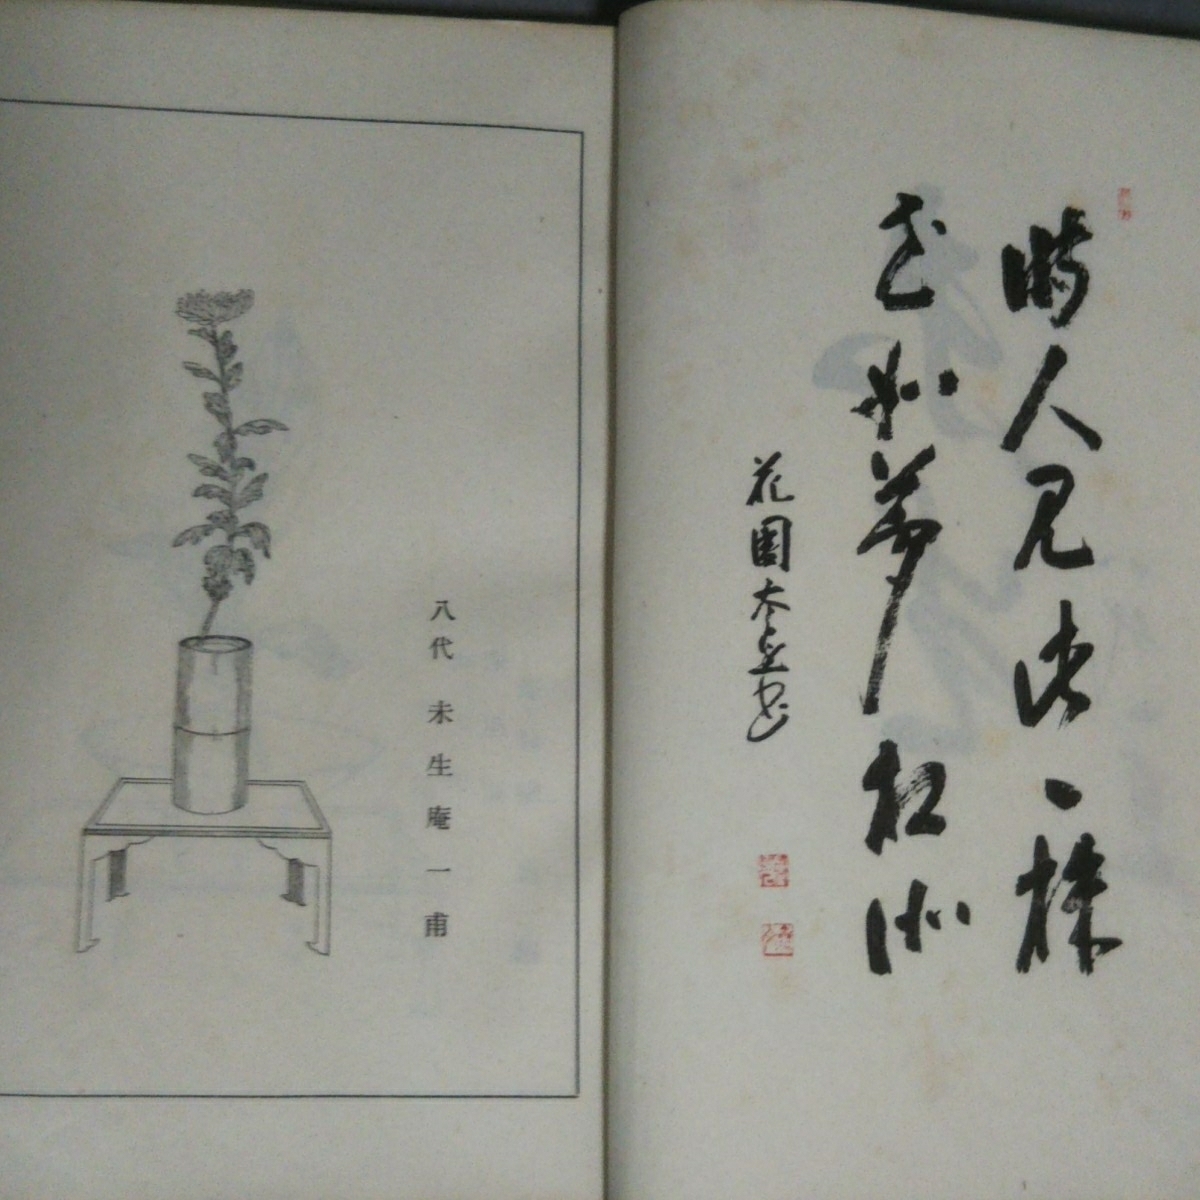 時人見此一株
花如夢相似
花園大岳書
八代 未生庵一甫